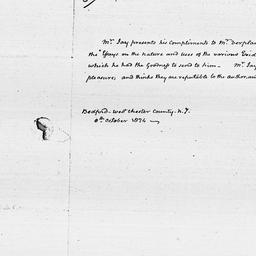 Mr. Jay presents his Compliments to Mr. Verplan
the "Essays on the nature and uses of the various Evid
which he had the goodness to send to him - Mr. Jay
pleasure; and thinks they are reputable to the author. an
Bedford - West chester County. N.Y.
8th October 1824